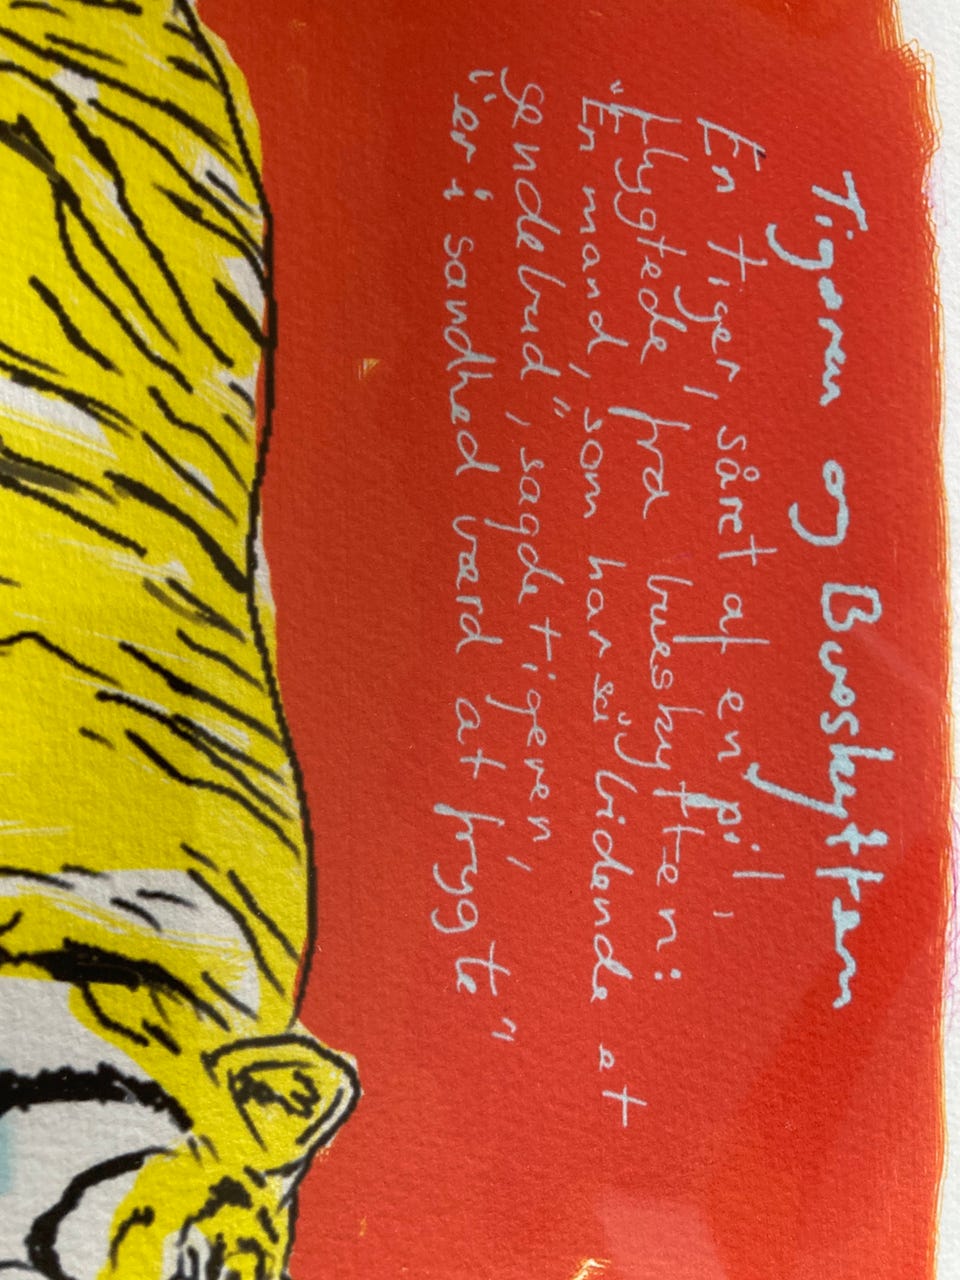 Tigeren og Bueskytten
En tiger, såret af en pil,
flygtede fra bueskytten:
"En mand, som har så bidende et
sendebud", sagde tigeren,
"er i sandhed værd at frygte"